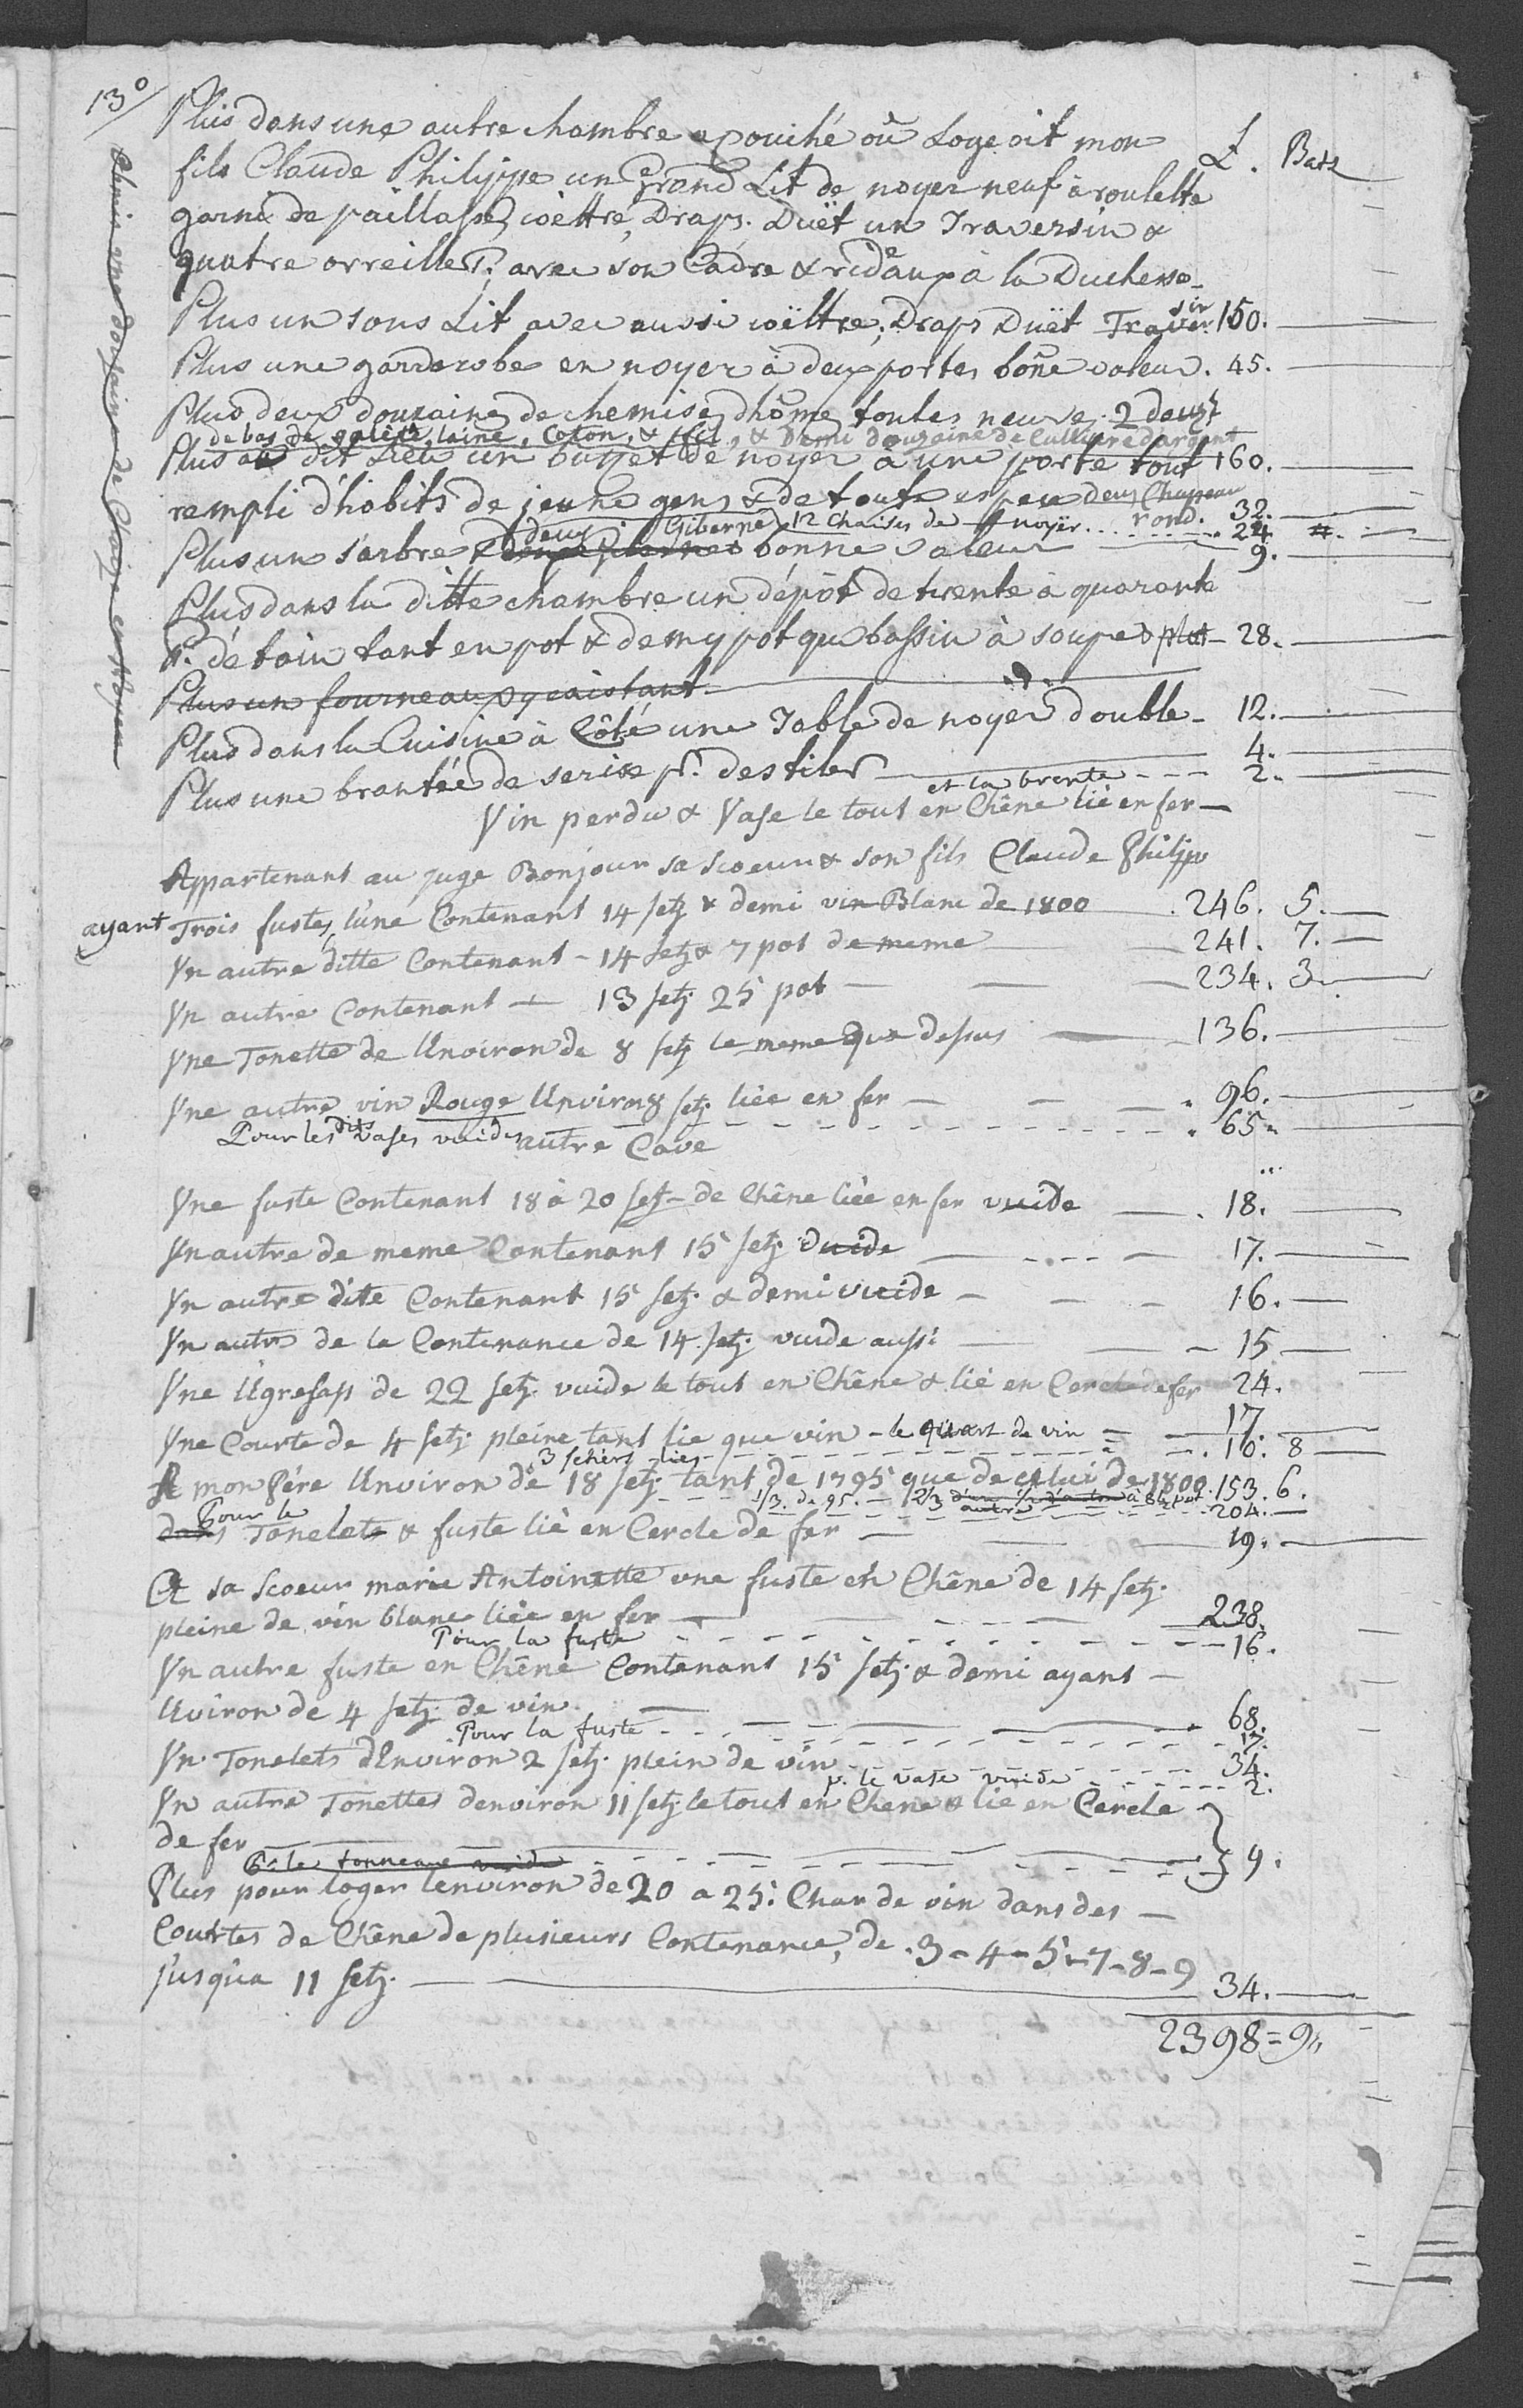 13°/
Plus dans une autre chambre apouihé où Logeoit mon
L. Batz
fils Claude Philippe un Grand Lit de noyer neuf à roulette
garni de paillasse, coëttre, Draps. Duët un Traversin &
quatre orreillers; avec son Cadre & rideaux à la Duchesse
Plus un sous Lit avec aussi coëttre, Draps Duët Traversin 150.
Plus une garderobe en noyer à deux portes boñe valeur. 45.
Plus deux douzaine de chemises dhome toutes neuve. 2 douzt
de bas de galette, laine, Coton, & fil, & Demi douzaine de Culliere d'argent
Plus au dit Lieu un buffet de noyer à une porte tout 160.
rempli d'hobits de jeune gens & de toute espece deux Chappeau rond. 32.
deux Giberne 12 Chaises de noyer. 24
Plus un sarbre & bonne valeur 9.
Plus dans la ditte chambre un dépôt de trente à quarante
tt. détain tant en pot & demy pot que bassin à soupe & plat 28.
Plus un fourneau y existant
Plus dans la Cuisine à Côté une Table de noyer double 12.
4.
Plus une brantée de serise pr. destiler
et la brente 2.
Vin perdu & Vase le tout en Chêne lié en fer
Appartenant au juge Bonjour sa scoeur & son fils Claude Philippe
ayant Trois fustes, l'une Contenant 14 setz & demi vin Blanc de 1800 246. 5.
Un autre ditte Contenant 14 setz & 7 pot de meme 241. 7.
Un autre Contenant 13 setz 25 pot 234. 3.
Une Tonette de Unviron de 8 setz le meme que dessus 136.
Une autre vin Rouge Unviron 8 setz. liée en fer 96.
Pour les dits vases vuides 65.
autre Cave
Une fuste Contenant 18 à 20 setz de Chêne liée en fer vuide 18.
Un autre de meme Contenant 15 setz. vuide 17.
Un autre dite Contenant 15 setz. & demi vuide 16.
Un autre de la Contenance de 14 setz. vuide aussi 15
Une Ugresass de 22 setz. vuide le tout en Chêne & lié en Cercle de fer 24.
Une Courte de 4 setz. pleine tant lie que vin le quart de vin 17.
3 setiers lies 10. 8
A mon Pére Unviron de 18 setz. tant de 1795 que de celui de 1800. 153. 6.
1/3. de 95. 2/3 autre 204.
Pour le
dans Tonelets & fuste liè en Cercle de fer 19.
Et sa scoeur marie Antoinette une fuste en Chêne de 14 setz.
pleine de vin blanc liée en fer 238.
Pour la fuste 16.
Un autre fuste en Chêne Contenant 15 setz. & demi ayant
Unviron de 4 setz de vin 68.
Pour la fuste 17.
Un Tonelets dEnviron 2 setz. plein de vin 34.
p. le vase vuide 2.
Un autre Tonettes denviron 11 setz le tout en Chene & lié en Cercle
de fer 9.
Pr le tonneau vuide
Plus pour loger lenviron de 20 a 25. Char de vin dans des
Courtes de Chêne de plusieurs Contenance, de 3-4-5-7-8-9
jusqûa 11 setz. 34.
2398=9
Demie une douzaine de Chaise en Noyer